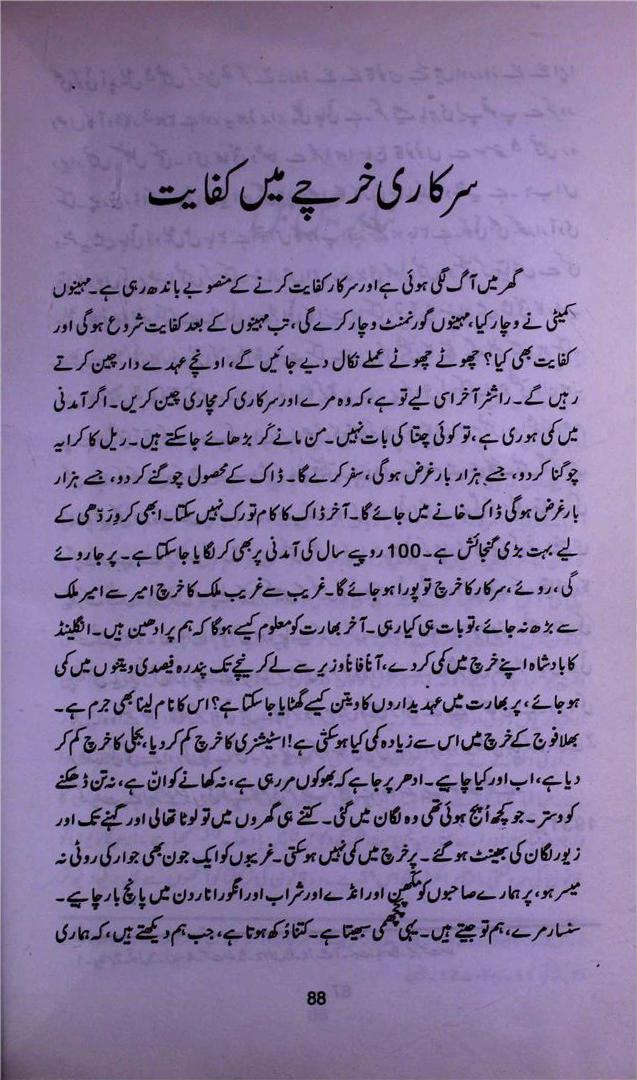 سرکاری خرچے میں کفایت
گھر میں آگ لگی ہوئی ہے اور سرکار کفایت کرنے کے منصوبے باندھ رہی ہے۔ مہینوں
کمیٹی نے وچار کیا، مہینوں گورنمنٹ وچار کرے گی، تب مہینوں کے بعد کفایت شروع ہوگی اور
کفایت بھی کیا؟ چھوٹے چھوٹے عملے نکال دیے جائیں گے، اونچے عہدے دار چین کرتے
رہیں گے۔ راشٹر آخر اسی لیے تو ہے، کہ وہ مرے اور سرکاری کرمچاری چین کریں۔ اگر آمدنی
میں کمی ہوری ہے، تو کوئی چنتا کی بات نہیں۔ من مانے کر بڑھائے جاسکتے ہیں۔ ریل کا کرایہ
چوگنا کردو، جسے ہزار بار غرض ہوگی، سفر کرے گا۔ ڈاک کے محصول چوگنے کردو، جسے ہزار
بار غرض ہوگی ڈاک خانے میں جائے گا۔ آخر ڈاک کا کام تو رک نہیں سکتا۔ ابھی کر وردّھی کے
لیے بہت بڑی گنجائش ہے۔ 100 روپے سال کی آمدنی پر بھی کر لگایا جاسکتا ہے۔ پرجا روئے
گی، روئے، سرکار کا خرچ تو پورا ہوجائے گا۔ غریب سے غریب ملک کا خرچ امیر سے امیر ملک
سے بڑھ نہ جائے، تو بات ہی کیا رہی۔ آخر بھارت کو معلوم کیسے ہوگا کہ ہم پرادھین ہیں۔ انگلینڈ
کا بادشاہ اپنے خرچ میں کمی کردے، آناً فاناً وزیر سے لے کر نیچے تک پندرہ فیصدی ویتنوں میں کمی
ہوجائے، پر بھارت میں عہدیداروں کا ویتن کیسے گھٹایا جاسکتا ہے؟ اس کا نام لینا بھی جرم ہے۔
بھلا فوج کے خرچ میں اس سے زیادہ کمی کیا ہوسکتی ہے! اسٹیشنری کا خرچ کم کردیا، بجلی کا خرچ کم کر
دیا ہے، اب اور کیا چاہیے۔ ادھر پرجا ہے کہ بھوکوں مررہی ہے، نہ کھانے کو انّ ہے، نہ تن ڈھکنے
کو وستر۔ جو کچھ اُپج ہوئی تھی وہ لگان میں گئی۔ کتنے ہی گھروں میں تو لوٹا تھالی اور گہنے تک اور
زیور لگان کی بھینٹ ہوگئے۔ پر خرچ میں کمی نہیں ہوسکتی۔ غریبوں کو ایک جون بھی جوار کی روٹی نہ
میسر ہو، پر ہمارے صاحبوں کو مکھن اور انڈے اور شراب اور انگور انار دن میں پانچ بار چاہیے۔
سنسار مرے، ہم تو جیتے ہیں۔ یہی پچھمی سبھیتا ہے۔ کتنا دُکھ ہوتا ہے، جب ہم دیکھتے ہیں، کہ ہماری
88